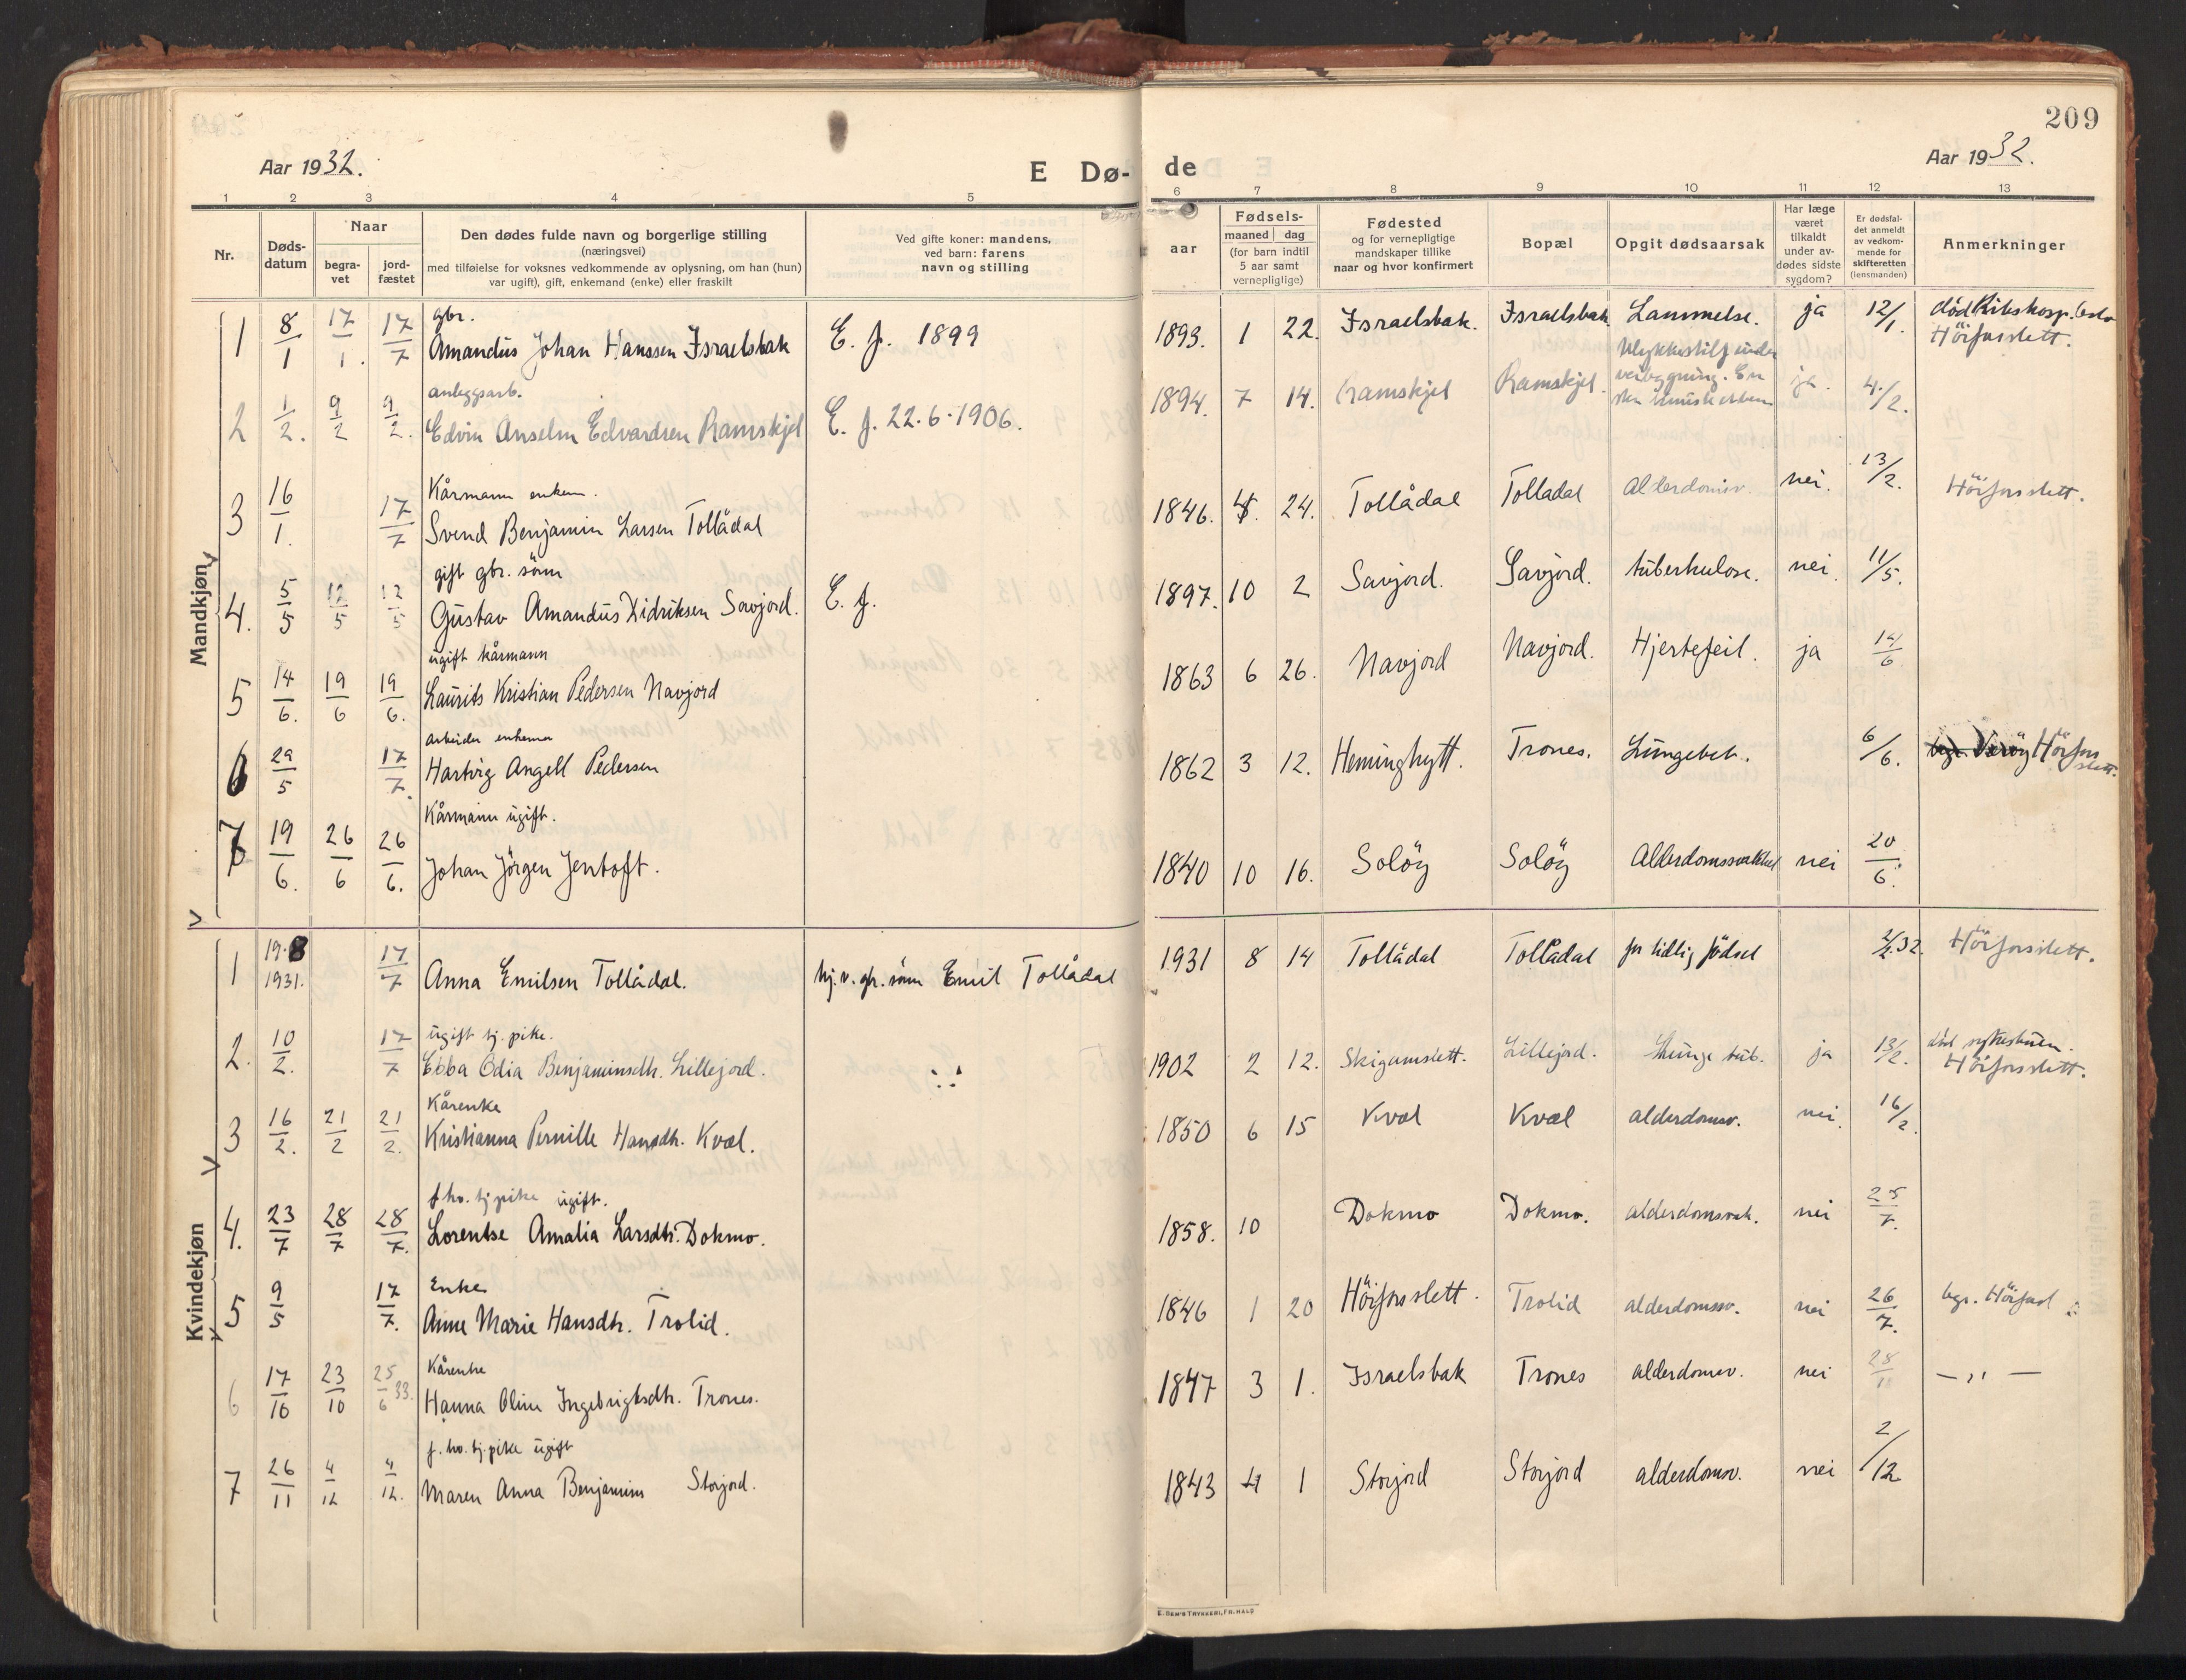 209
Aar 1932.
E Dø-
de
Aar 1932.
1 2 3 4 5 6 7 8 9 10 11 12 13
Nr.
Døds-
datum
Naar
begra-
vet
jord-
fæstet
Den dødes fulde navn og borgerlige stilling
(næringsvei)
med tilføielse for voksnes vedkommende av oplysning, om han (hun)
var ugift), gift, enkemand (enke) eller fraskilt
Ved gifte koner: mandens,
ved barn: farens
navn og stilling
aar
Fødsels-
maaned dag
(for barn indtil
5 aar samt
vernepligtige)
Fødested
og for vernepligtige
mandskaper tillike
naar og hvor konfirmert
Bopæl
Opgit dødsaarsak
Har læge
været
tilkaldt
under av-
dødes sidste
sygdom?
Er dødsfal-
det anmeldt
av vedkom-
mende for
skifteretten
(lensmanden)
Anmerkninger
Mandkjøn
gbr.
1 8/1 17/1. 17/7 Amandus Johan Hanssen Israelsbak E. f. 1899 1893. 1 22. Israelsbak. Israelsbak Lammelse. ja 12/1. død Rikshosp. Oslo
Hörfarslett.
anleggsarb.
2 1/2. 9/2 9/2. Edvin Anselm Edvardsen Ramskjel E. f. 22.6-1906. 1894. 7 14. Ramskjel Ramskjel. Ulykkestilf under
veibygning. En
sten knuste ja. 4./2.
Kårmann enkem.
3 16/1. 17/7 Svend Benjamin Larsen Tollådal 1846. 4. 24. Tollådal Tolladal Alderdomsv. nei. 13/2. Hörfarslett.
gift gbr. sönn
4. 5/5 12/5 12/5 Gustav Amandus Didriksen Savjord. E. f. 1897. 10 2 Savjord. Savjord. tuberkulose. nei. 11/5.
ugift kårmann
5 14/6. 19/6 19/6. Laurits Kristian Pedersen Navjord 1863 6 26. Navjord Navjord. Hjertefeil. ja 14/6
arbeider enkem
6 29/5 17/7. Hartvig Angell Pedersen 1862 3 12. Heminghytt. Trones. Lungebet. 6/6. begr. Værøy Hörfars
slett.
Kårmann ugift.
7 19/6. 26/6 26/6. Johan Jörgen Jentoft. 1840 10 16. Solöy Solöy Alderdomssvakhet nei 20/6.
Kvindekjøn
1 19.8
1931. 17/7 Anna Emilsen Tollådal. hj.v. gbr. sönn Emil Tollådal 1931 8 14 Tollådal Tollådal for tidlig födsel 2/2.32. Hörfarslett.
ugift tj. pike.
2. 10/2. 17/7 Ebba Odia Benjaminsdtr. Lillejord. 1902 2 12. Skigamslett. Lillejord. Lunge tub. ja 13/2. död sykestuen.
Hörfarslett.
Kårenke
3 16/2. 21/2 21/2. Kristianna Pernille Hansdtr. Kvæl. 1850 6 15 Kvæl Kvæl alderdomsv. nei. 16/2.
f.hv. tj.pike ugift.
4. 23/7 28/7 28/7. Lorentse Amalia Larsdtr. Dokmo. 1858. 10 Dokmo Dokmo. alderdomsvak. nei 25/7.
Enke
5 9/5 17/7. Anne Marie Hansdtr. Trolid. 1846 1 20 Hörfarslett. Trolid alderdomssv. nei 26/7. begr. Hörfarsl
Kårenke
6 17/10 23/10 25/6 33. Hanna Oline Ingebrigtsdtr. Trones. 1847 3 1. Israelsbak Trones alderdomsv. nei 28/11 — ,, —
f. hv. tj.pike ugift
7 26/11 4/12 4/12. Maren Anna Benjamins Storjord. 1843 4 1 Storjord Storjord alderdomsv. nei 2/12
E. SEM'S TRYKKERI, FR.HALD